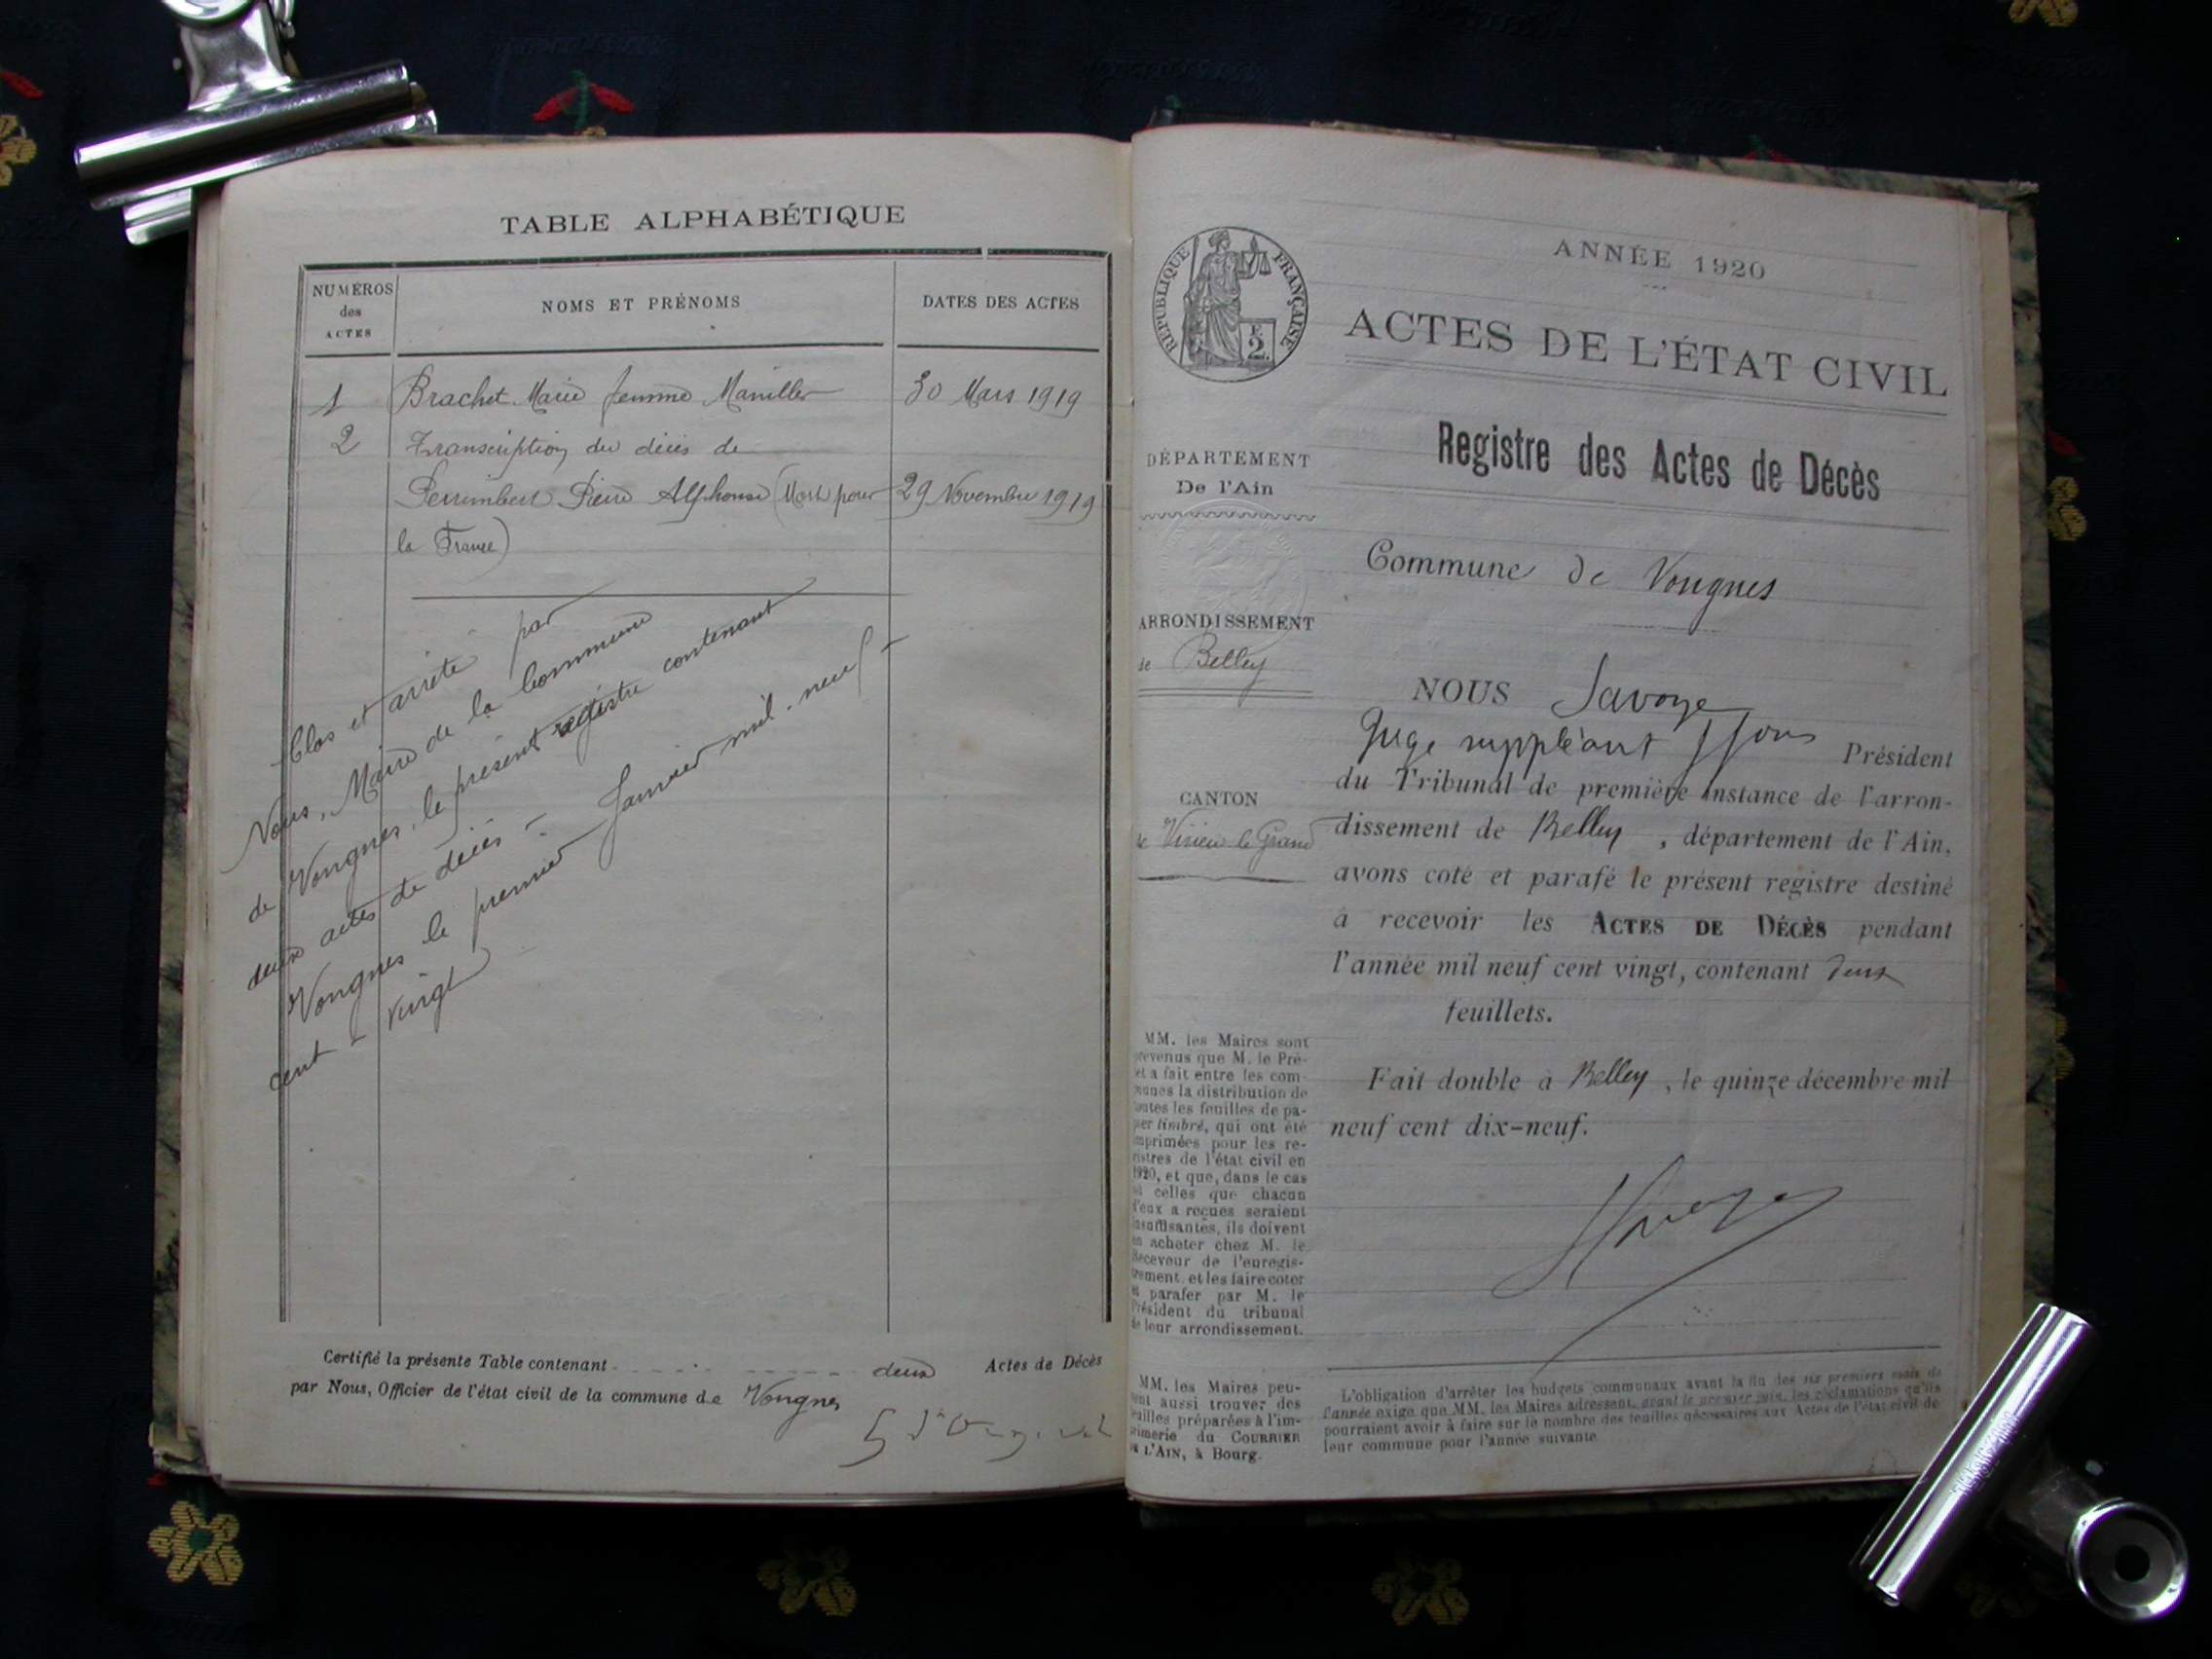 TABLE ALPHABÉTIQUE
NUMÉROS
des
ACTES
NOMS ET PRÉNOMS
DATES DES ACTES
1 Brachet Marie femme Maniller 30 Mars 1919
2 Transcription du décès de
Perrimbert Pierre Alphonse (Mort pour 29 Novembre 1919
la France)
Clos et arrêté par
Nous, Maire de la Commune
de Vongnes, le présent registre contenant
deux actes de décès -
Vongnes le premier Janvier mil-neuf-
cent-vingt
Certifié la présente Table contenant deux Actes de Décès
par Nous, Officier de l'état civil de la commune de Vongnes
RÉPUBLIQUE FRANÇAISE
2
DÉPARTEMENT
De l'Ain
ARRONDISSEMENT
de Belley
CANTON
de Virieu le Grand
MM. les Maires sont
prévenus que M. le Pré-
fet a fait entre les com-
munes la distribution de
toutes les feuilles de pa-
pier timbré, qui ont été
imprimées pour les re-
gistres de l'état civil en
1920, et que, dans le cas
où celles que chacun
d'eux a reçues seraient
insuffisantes, ils doivent
en acheter chez M. le
Receveur de l'enregis-
trement, et les faire coter
et parafer par M. le
Président du tribunal
de leur arrondissement.
MM. les Maires peu-
vent aussi trouver des
feuilles préparées à l'im-
primerie du COURRIER
DE L'AIN, à Bourg.
ANNÉE 1920
ACTES DE L'ÉTAT CIVIL
Registre des Actes de Décès
Commune de Vongnes
NOUS Savoye
Juge suppléant ffons Président
du Tribunal de première instance de l'arron-
dissement de Belley, département de l'Ain,
avons coté et parafé le présent registre destiné
à recevoir les ACTES DE DÉCÈS pendant
l'année mil neuf cent vingt, contenant deux
feuillets.
Fait double à Belley, le quinze décembre mil
neuf cent dix-neuf.
L'obligation d'arrêter les budgets communaux avant la fin des six premiers mois de
l'année exige que MM. les Maires adressent, avant le premier juin, les réclamations qu'ils
pourraient avoir à faire sur le nombre des feuilles nécessaires aux Actes de l'état civil de
leur commune pour l'année suivante